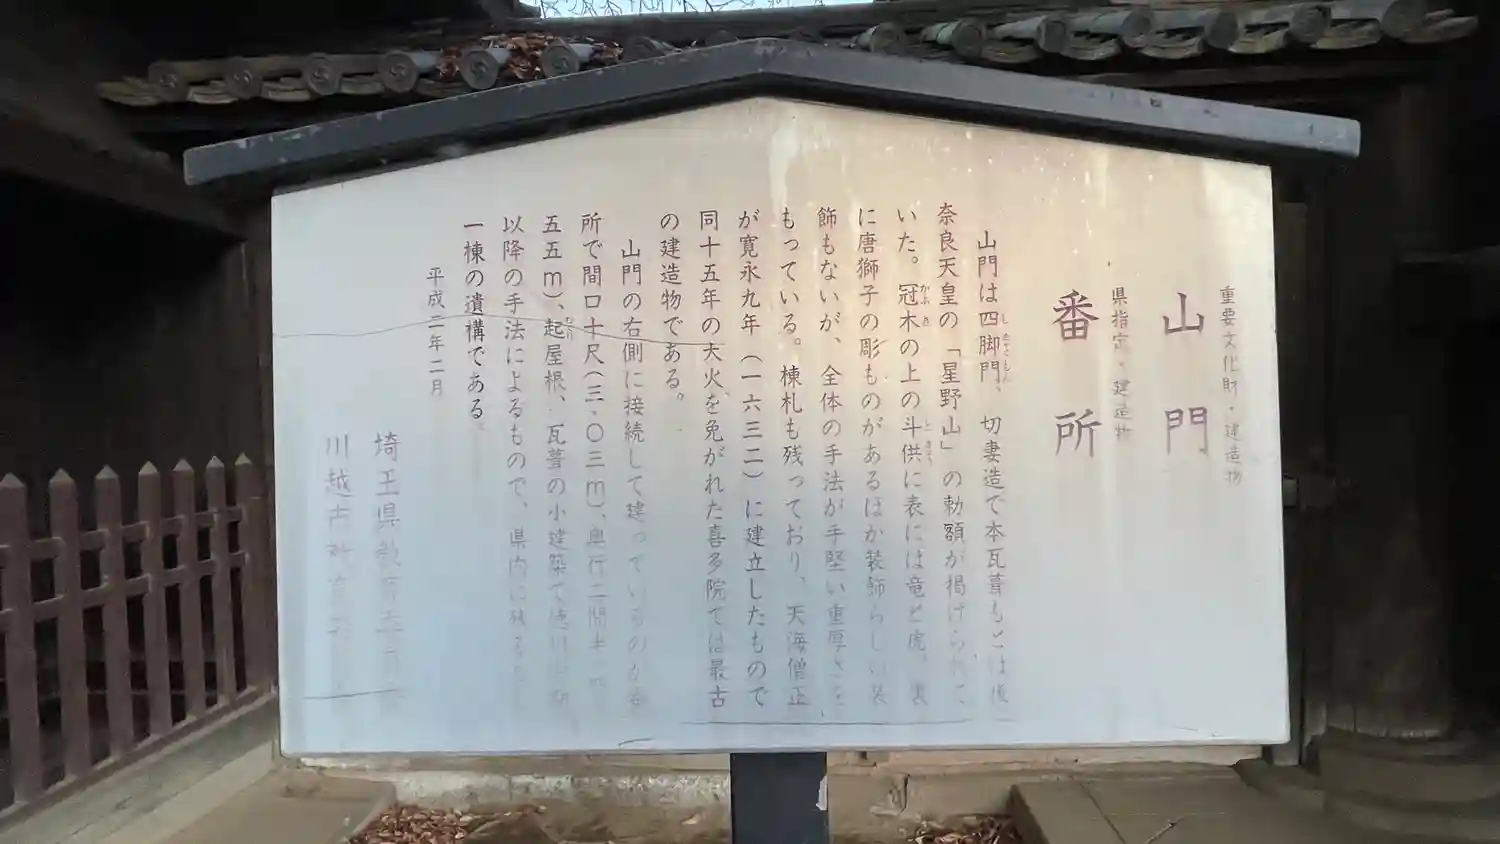 重要文化財・建造物
山門
県指定・建造物
番所
山門は四脚門、切妻造で本瓦葺もとは後
しきゃくもん
奈良天皇の「星野山」の勅額が掲げられて
いた。冠木の上の斗供に表には竜と虎、裏
かぶき
ときょう
に唐獅子の彫ものがあるほか装飾らしい装
飾もないが、全体の手法が手堅い重厚さを
もっている。棟札も残っており、天海僧正
が寛永九年（一六三二）に建立したもので
同十五年の大火を免がれた喜多院では最古
の建造物である。
山門の右側に接続して建っているのが番
所で間口十尺（三・〇三m）、奥行二間半
五五m）、起屋根、瓦葺の小建築で徳川
むくり
以降の手法によるもので、県内に残る
一棟の遺構である。
平成二年二月
埼玉県教育委員会
川越市教育委員会